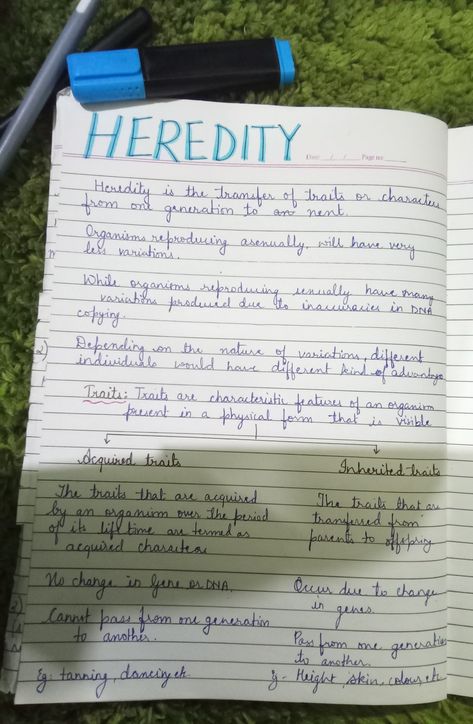 HEREDITY
Date / / Page no
Heredity is the transfer of traits or characters
from one generation to an nent.
Organisms reproducing asenually, will have very
less variations.
While organisms reproducing senually have many
variations produced due to inaccuracies in DNA
copying.
2) Depending on the nature of variations, different
individuals would have different kind of advantage
Traits: Traits are characteristic features of an organism
present in a physical form that is visible
Acquired traits
Inherited traits
The traits that are acquired
by an organism over the period
of its life time are termed as
acquired characters
The traits that are
transferred from
parents to offspring
No change in Gene or DNA.
Occur due to change
in genes.
Cannot pass from one generation
to another.
Pass from one generation
to another.
Eg: tanning, dancing etc
Eg - Height, skin, colour etc